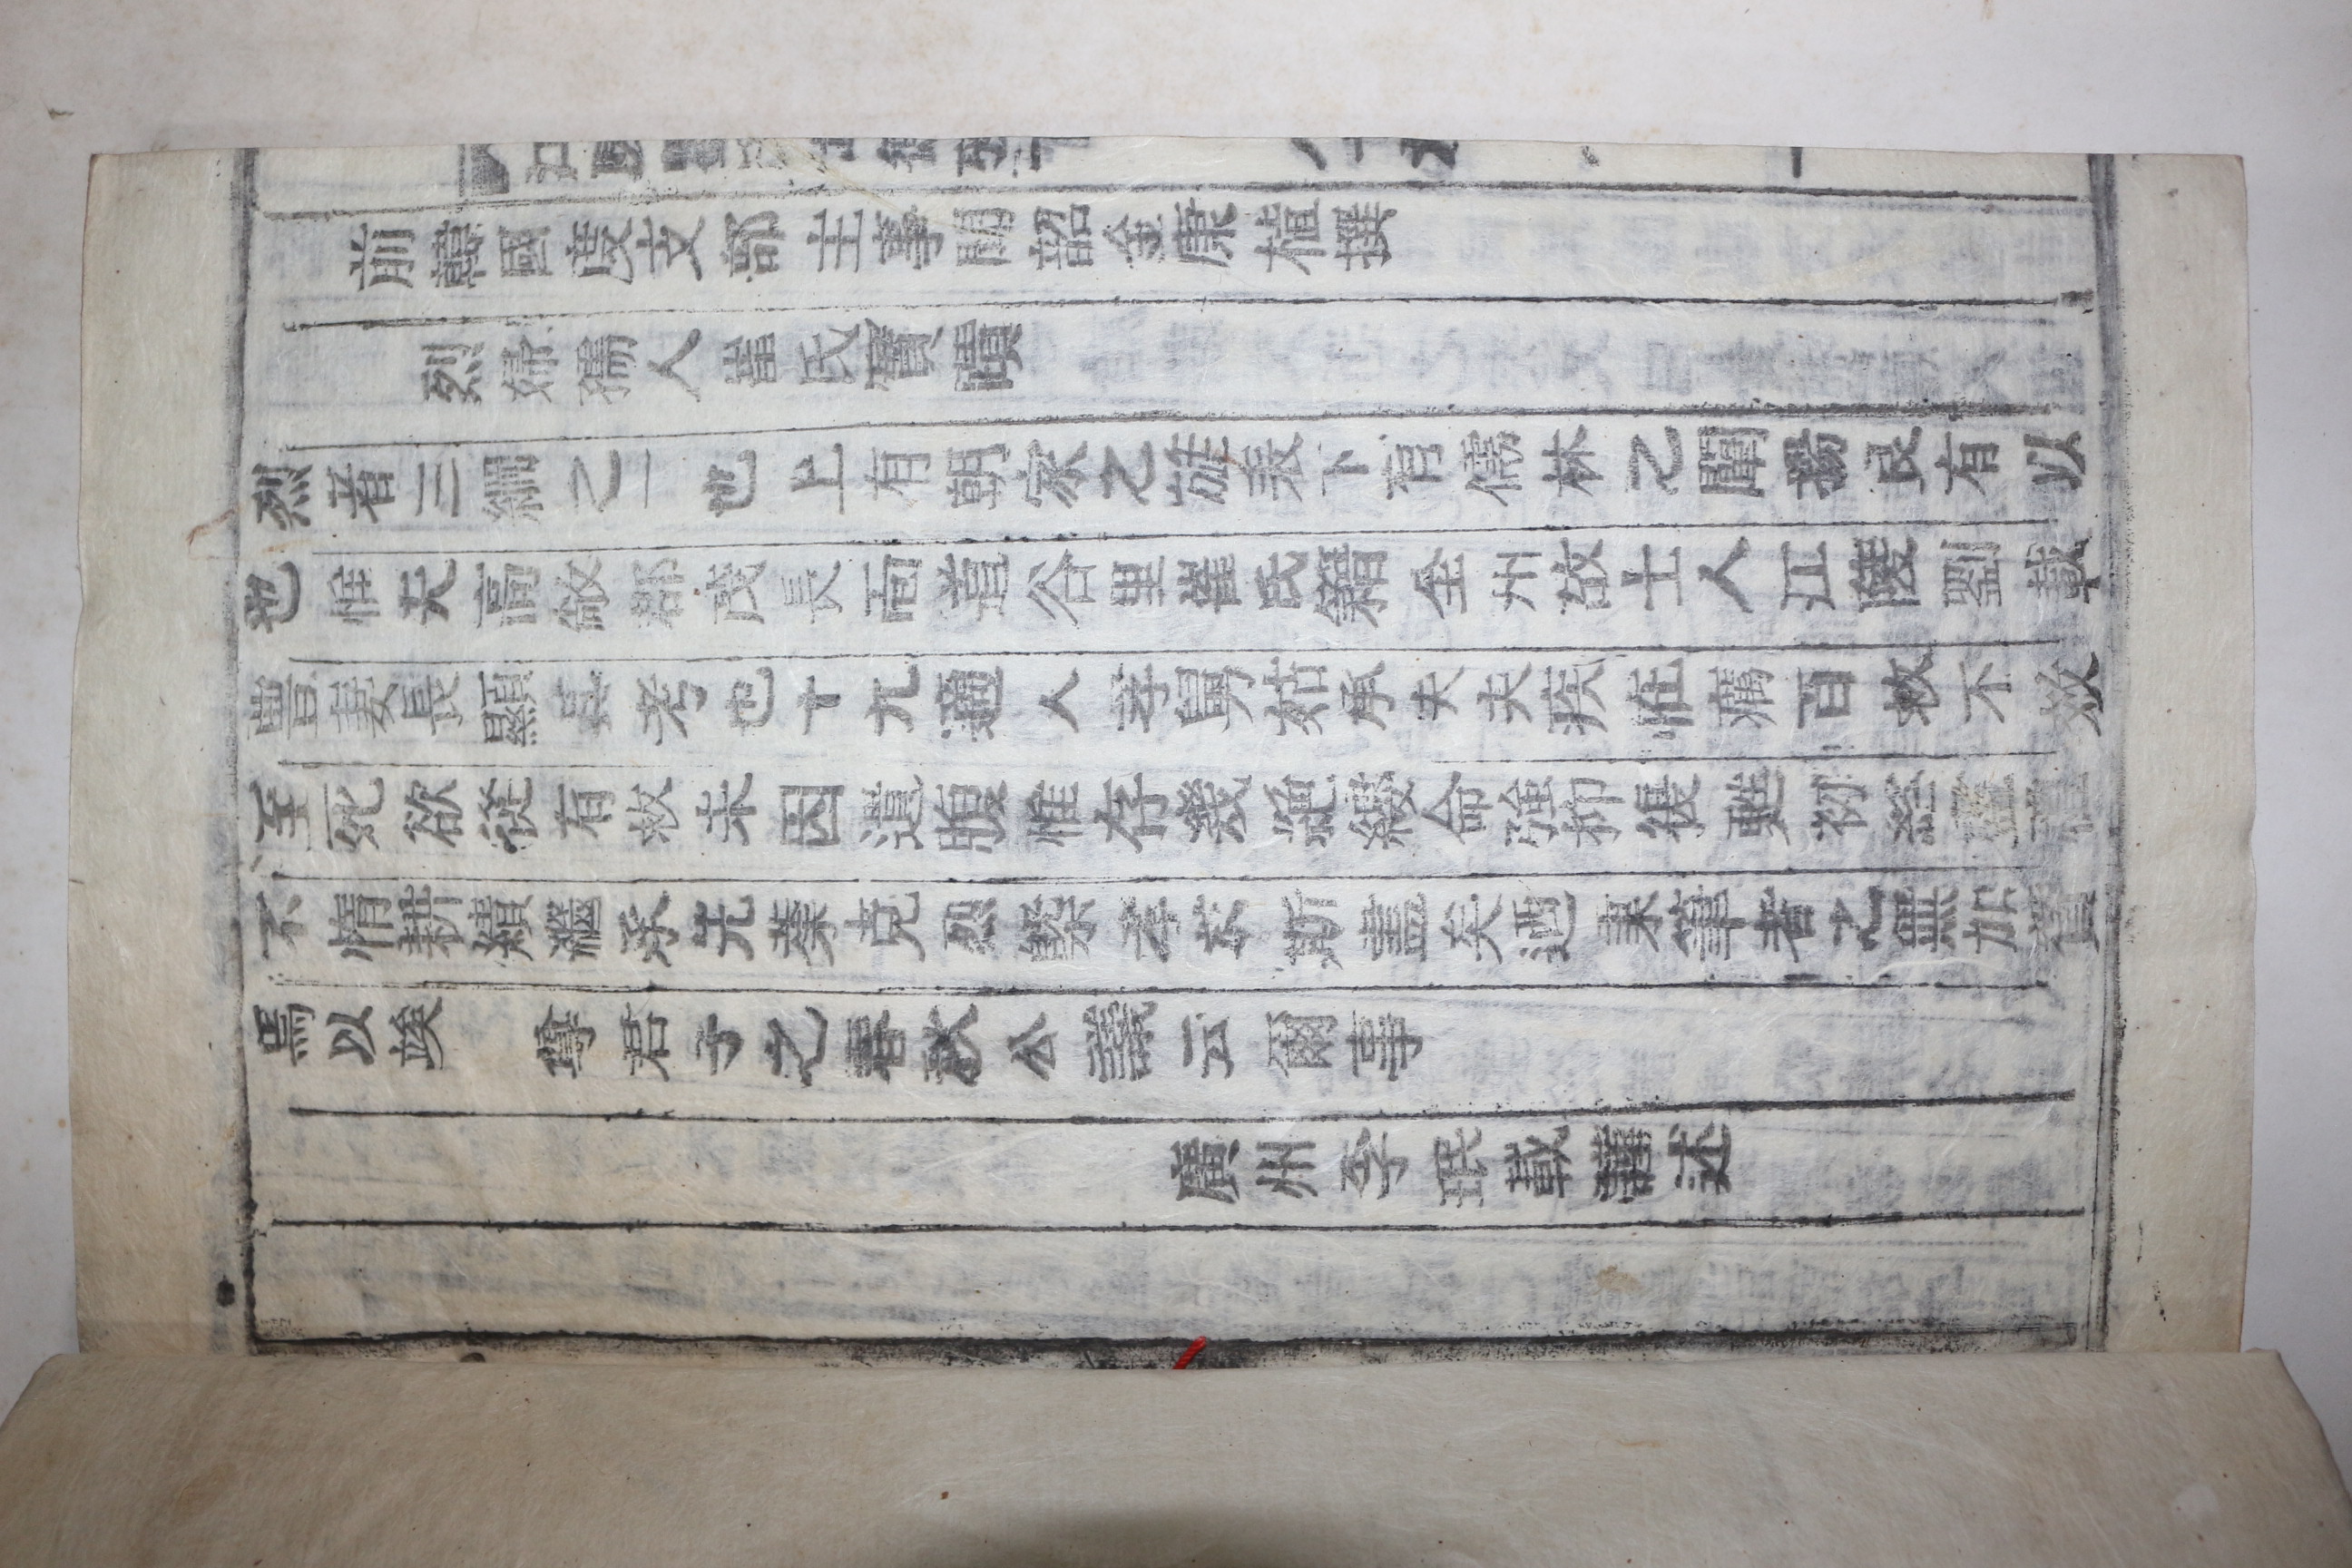 前韓國度支部主事聞韶金康植撰
烈婦孺人崔氏實蹟
烈者三綱之一也上有朝家之旌表下有儒林之闡揚良有以
也惟天高敞郡茂長面道谷里崔氏籍全州故士人江陵劉載
豊妻長顯其考也十九適人孝舅姑承夫夫疾恠癘百救不效
至死欲從有救未因遺腹惟存幾絶縷命強抑復甦初終盡禮
不惰耕績繼承先業克烈槩孝於斯盡矣迺秉筆者之無加贊
焉以竢 尊君子之春秋公議云爾事
廣州李珉載謹述